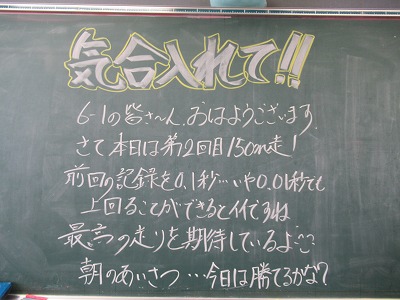 気合入れて!!
6-1の皆さ〜ん、おはようございます
さて本日は第2回目150m走!
前回の記録を0.1秒…いや0.01秒でも
上回ることができるとイイですね
最高の走りを期待しているよ
朝のあいさつ…今日は勝てるかな?